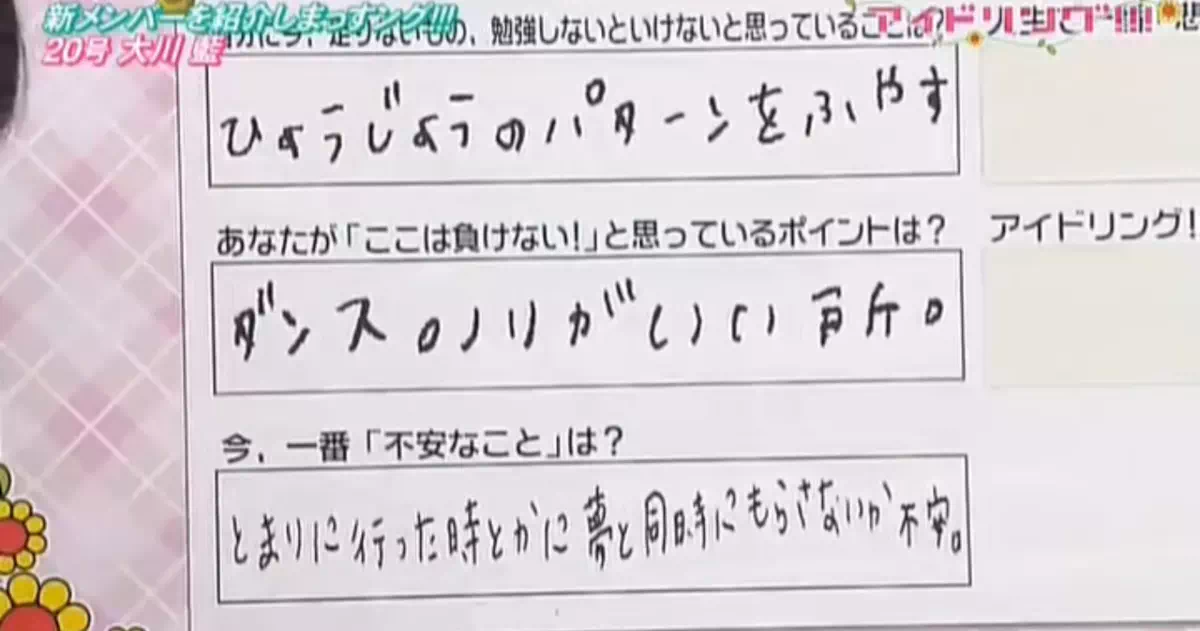 新メンバーを紹介しまっすング!!!
20号 大川 藍
足りないもの、勉強しないといけないと思っていることは?
ひょうじょうのパターンをふやす
あなたが「ここは負けない!」と思っているポイントは?
アイドリング!
ダンスのノリがいい所。
今、一番「不安なこと」は?
とまりに行った時とかに夢と同時にもらさないか不安。